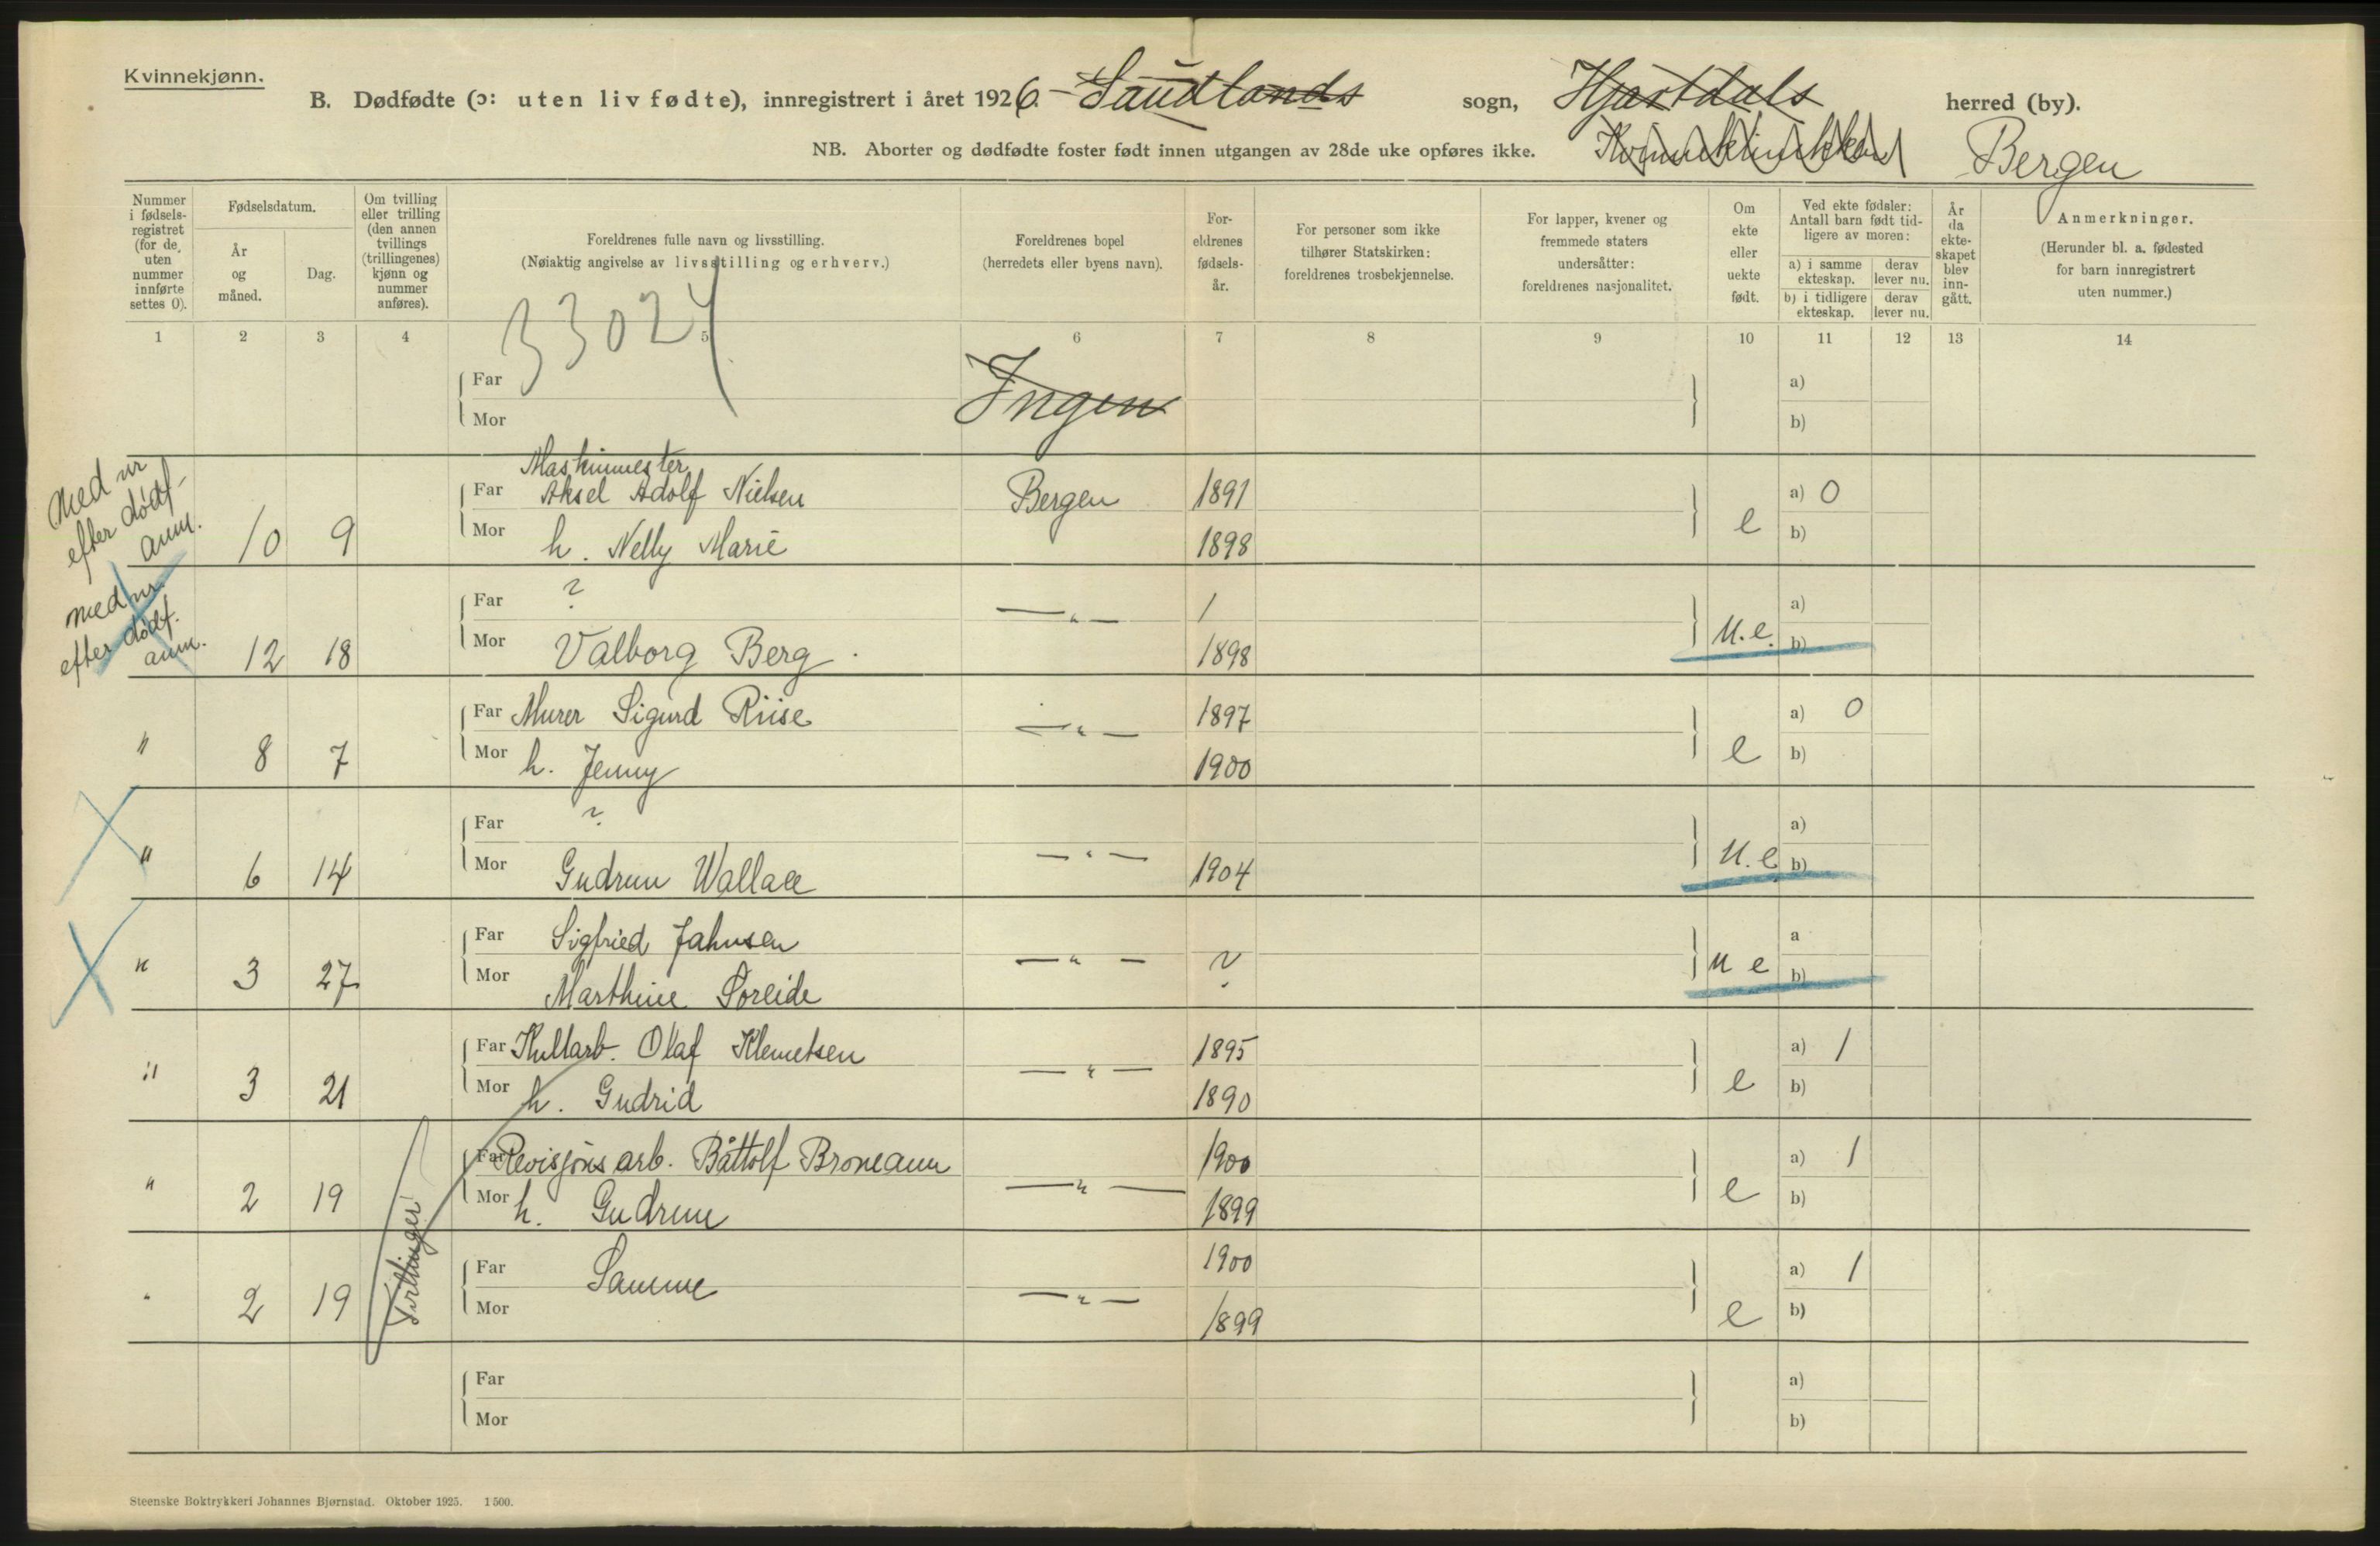 Kvinnekjønn.
B. Dødfødte (ɔ: uten liv fødte), innregistrert i året 1926. Saudlands sogn, Hjartdals herred (by).
NB. Aborter og dødfødte foster født innen utgangen av 28de uke opføres ikke. Kvinneklinikken Bergen
Nummer i fødsels-registret (for de uten nummer innførte settes 0).
Fødselsdatum.
År og måned.
Dag.
Om tvilling eller trilling (den annen tvillings (trillingenes) kjønn og nummer anføres).
Foreldrenes fulle navn og livsstilling.
(Nøiaktig angivelse av livsstilling og erhverv.)
Foreldrenes bopel
(herredets eller byens navn).
For-eldrenes fødsels-år.
For personer som ikke tilhører Statskirken: foreldrenes trosbekjennelse.
For lapper, kvener og fremmede staters undersåtter: foreldrenes nasjonalitet.
Om ekte eller uekte født.
Ved ekte fødsler: Antall barn født tid-ligere av moren:
a) i samme ekteskap.
derav lever nu.
b) i tidligere ekteskap.
derav lever nu.
År da ekte-skapet blev inn-gått.
Anmerkninger.
(Herunder bl. a. fødested for barn innregistrert uten nummer.)
33024
1 2 3 4 5 6 7 8 9 10 11 12 13 14
Far a)
Ingen
Mor b)
Med nr
efter dødf-
anm.
Maskinmester
Far Aksel Adolf Nielsen Bergen 1891 a) 0
10 9 Mor h. Nelly Marie 1898 e b)
med nr.
efter dødf.
anm.
Far ? —"— / a)
12 18 Mor Valborg Berg. 1898 U.e. b)
Far Murer Sigurd Riise —"— 1897 a) 0
" 8 7 Mor h. Jenny 1900 e b)
Far ? a)
" 6 14 Mor Gudrun Wallace —"— 1904 U.e b)
Far Sigfried Jahnsen a
" 3 27 Mor Marthine Søreide —"— ? U e b)
Far Kullarb. Olaf Klemetsen 1895 a) 1
" 3 21 Mor h. Gudrid —"— 1890 e b)
Far Revisjons arb. Båttolf Broneann 1900 a) 1
" 2 19 Mor h. Gudrun —"— 1899 e b)
Tvillinger
Far Samme 1900 a) 1
" 2 19 Mor —"— 1899 e b)
Far a)
Mor b)
Steenske Boktrykkeri Johannes Bjørnstad. Oktober 1925. 1500.